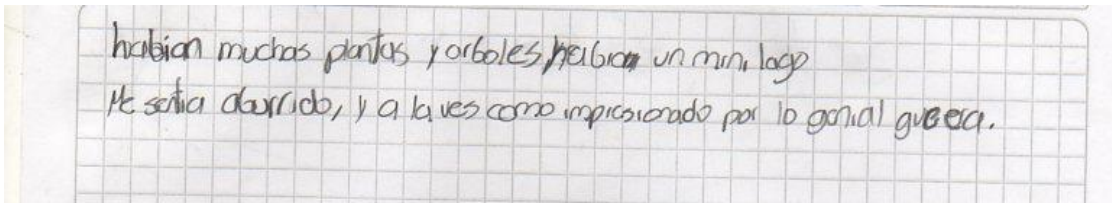 habian muchas plantas y arboles, habian un mini lago
Me sentia aburrido, y a la ves como impresionado por lo genial que era.